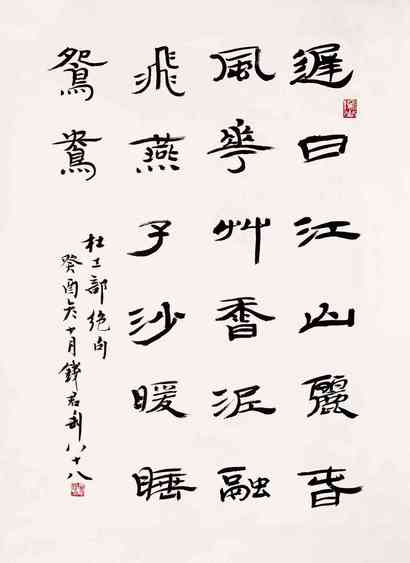 遲日江山麗春
風華艸香泥融
飛燕子沙暖睡
鴛鴦
杜工部絕句
癸酉冬十月錢君匋八十八